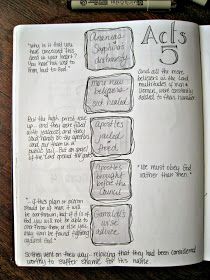 Acts
5
"Why is it that you
have conceived this
deed in your heart?
You have not lied to
men, but to God."
Ananias
Sapphira's
dishonesty
Many new
believers
and healed
And all the more
believers in the Lord
multitudes of men &
women, were constantly
added to their number
But the high priest rose
up - and they were filled
with jealousy and they
laid hands on the apostles
and put them in a
public jail. But an angel
of the Lord opened the gates
Apostles
jailed
&
freed
Apostles
brought
before the
Council
"We must obey God
rather than men."
"- if this plan or action
should be of men, it will
be overthrown, but if it is of
God you will not be able to
overthrow them; or else you
may even be found fighting
against God."
Gamaliel's
wise
advice
So they went on their way - rejoicing that they had been considered
worthy to suffer shame for his name.